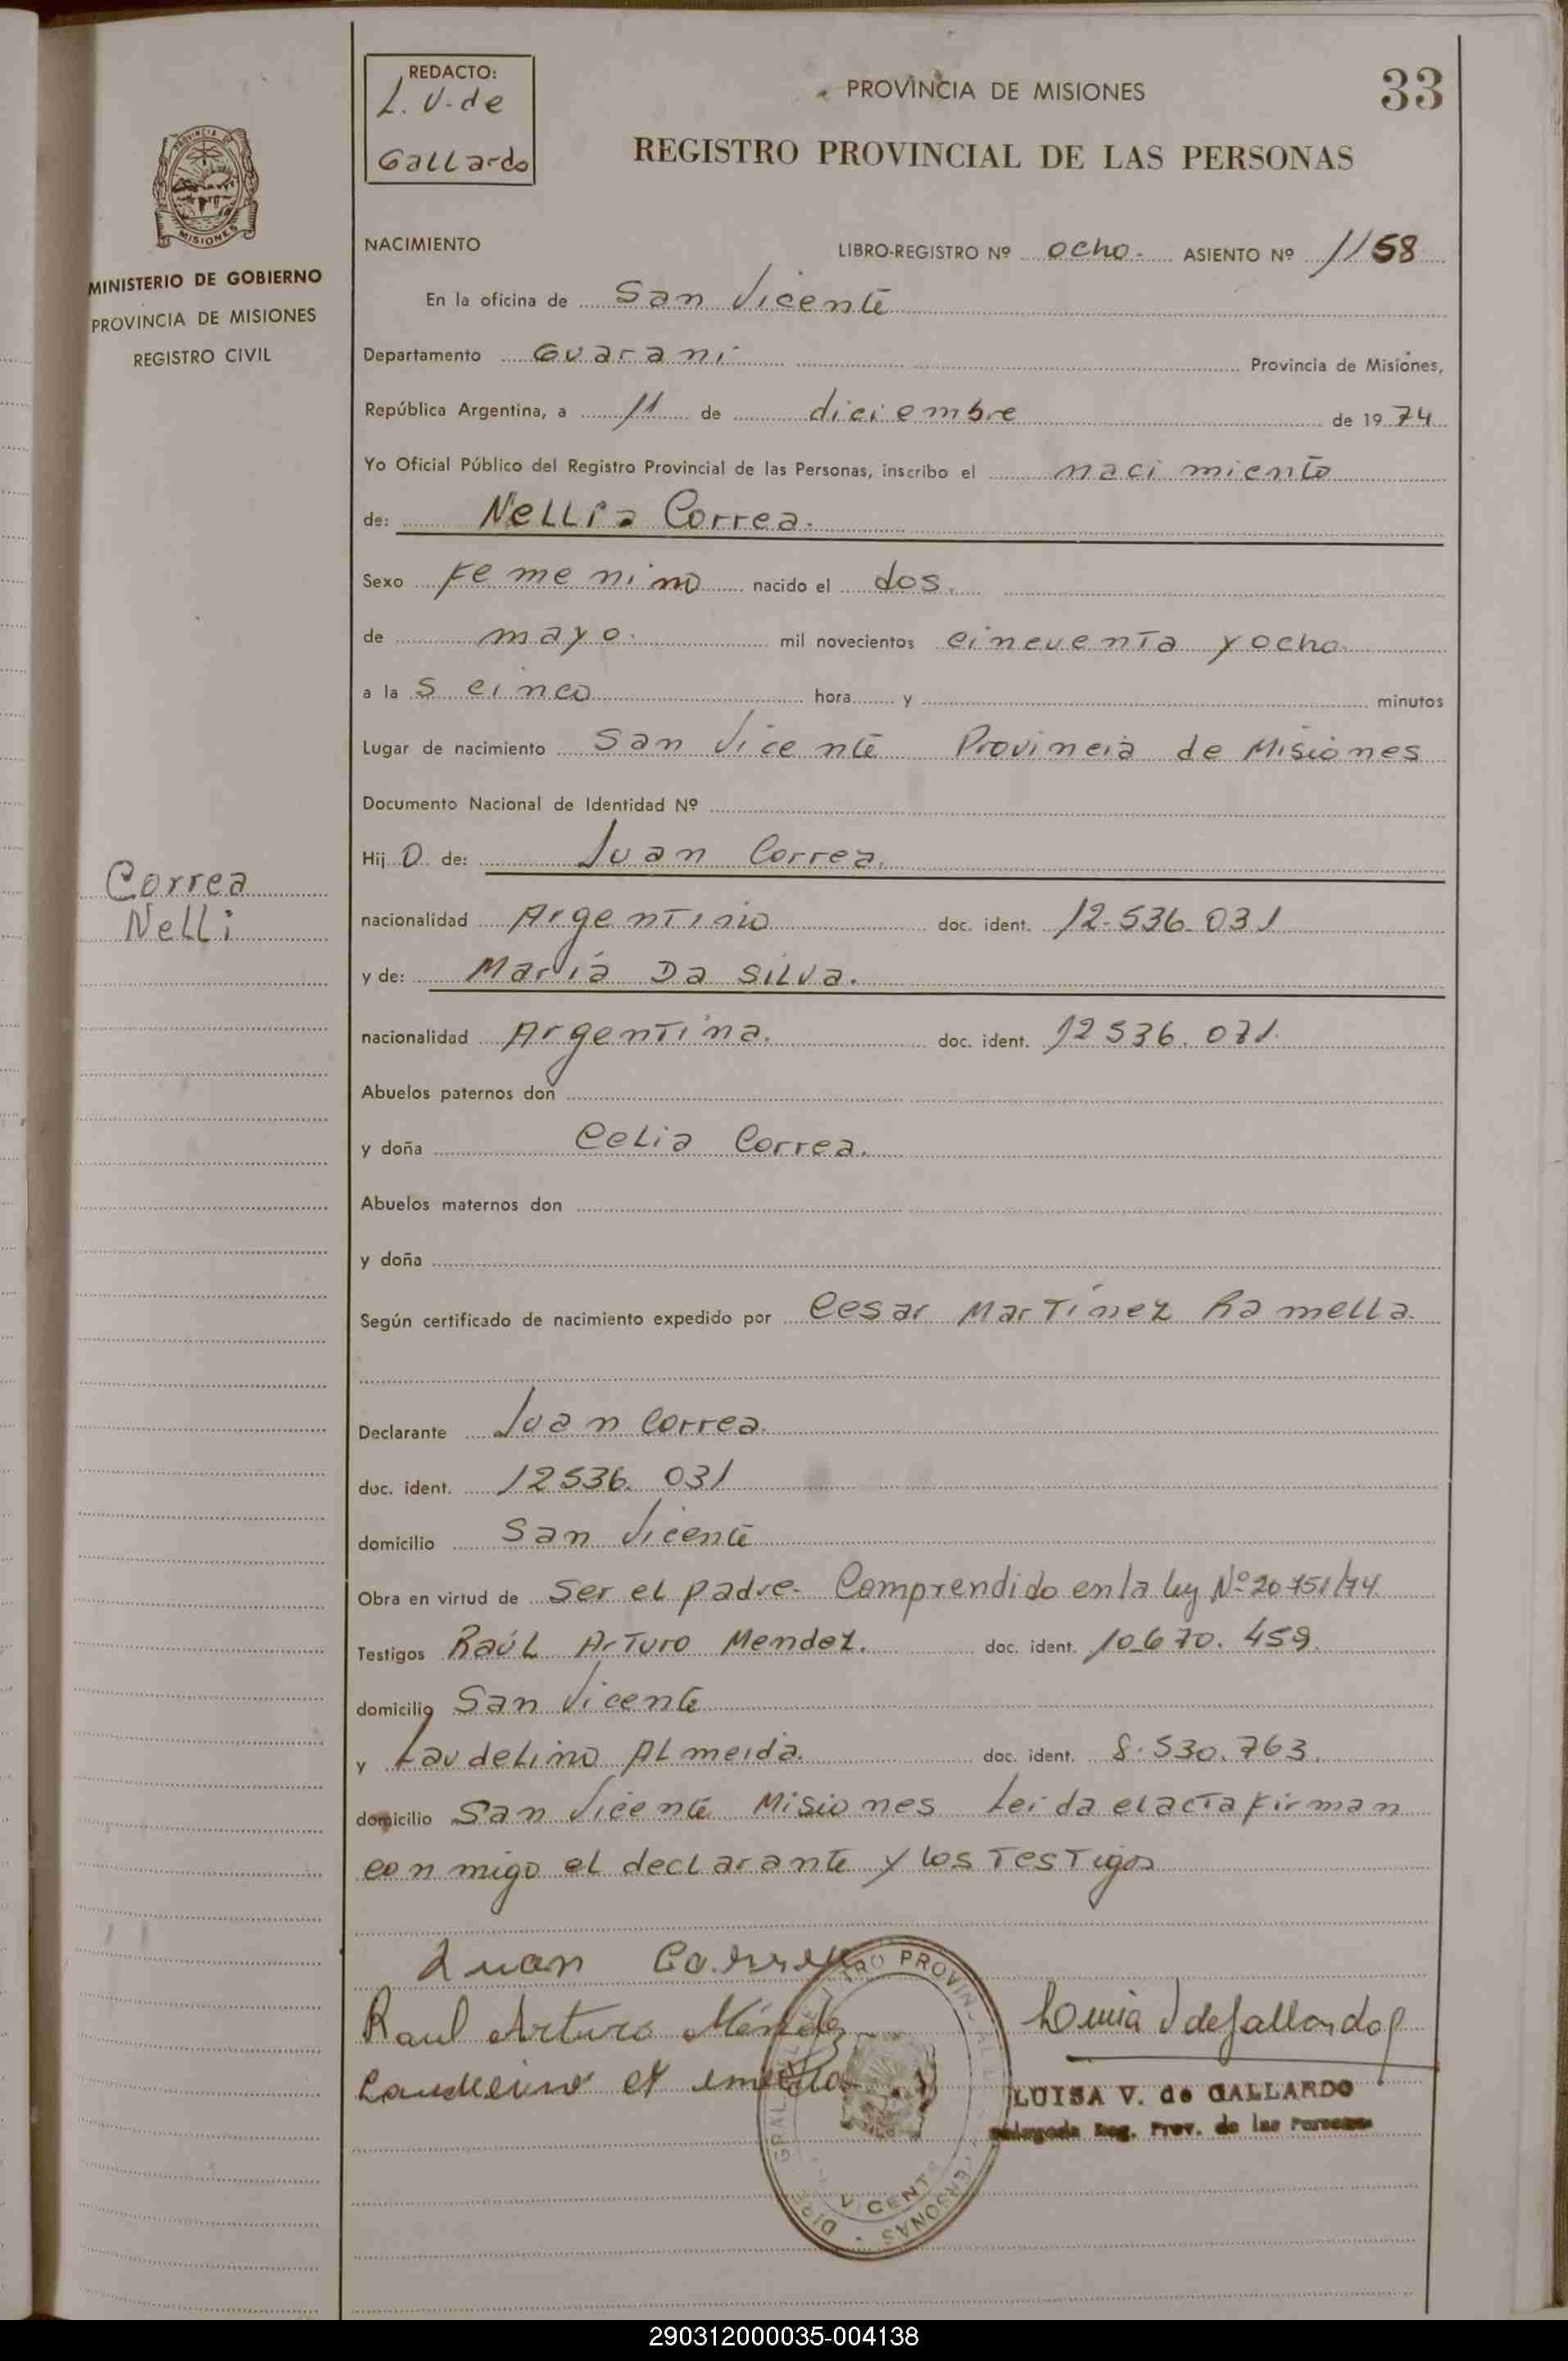 33
REDACTO:
L. V. de
Gallardo
PROVINCIA DE MISIONES
REGISTRO PROVINCIAL DE LAS PERSONAS
PROVINCIA DE
MISIONES
MINISTERIO DE GOBIERNO
PROVINCIA DE MISIONES
REGISTRO CIVIL
NACIMIENTO
LIBRO-REGISTRO Nº ocho. ASIENTO Nº 1158
En la oficina de San Vicente
Departamento Guaraní Provincia de Misiones,
República Argentina, a 11 de diciembre de 1974
Yo Oficial Público del Registro Provincial de las Personas, inscribo el nacimiento
de: Correa.
Sexo Femenino nacido el dos.
de mayo. mil novecientos cincuenta y ocho.
a las cinco hora y minutos
Lugar de nacimiento San Vicente Provincia de Misiones
Documento Nacional de Identidad Nº
Hijo de: Juan Correa.
Correa
Nelli
nacionalidad Argentino doc. ident. 12.536.031
y de: María Da Silva.
nacionalidad Argentina. doc. ident. 12536.071.
Abuelos paternos don
y doña Celia Correa.
Abuelos maternos don
y doña
Según certificado de nacimiento expedido por Cesar Martínez Ramella.
Declarante Juan Correa.
doc. ident. 12536.031
domicilio San Vicente
Obra en virtud de Ser el padre. Comprendido en la ley Nº 20751/74
Testigos Raúl Arturo Mendez. doc. ident. 10.670.459.
domicilio San Vicente
y Laudelino Almeida. doc. ident. 8.530.763.
domicilio San Vicente Misiones Leida el acta firman
conmigo el declarante y los Testigos
Juan Correa
Raul Arturo Méndez
Luisa V de Gallardo
LUISA V. de GALLARDO
Delegada Reg. Prov. de las Personas
VICENTE
290312000035-004138